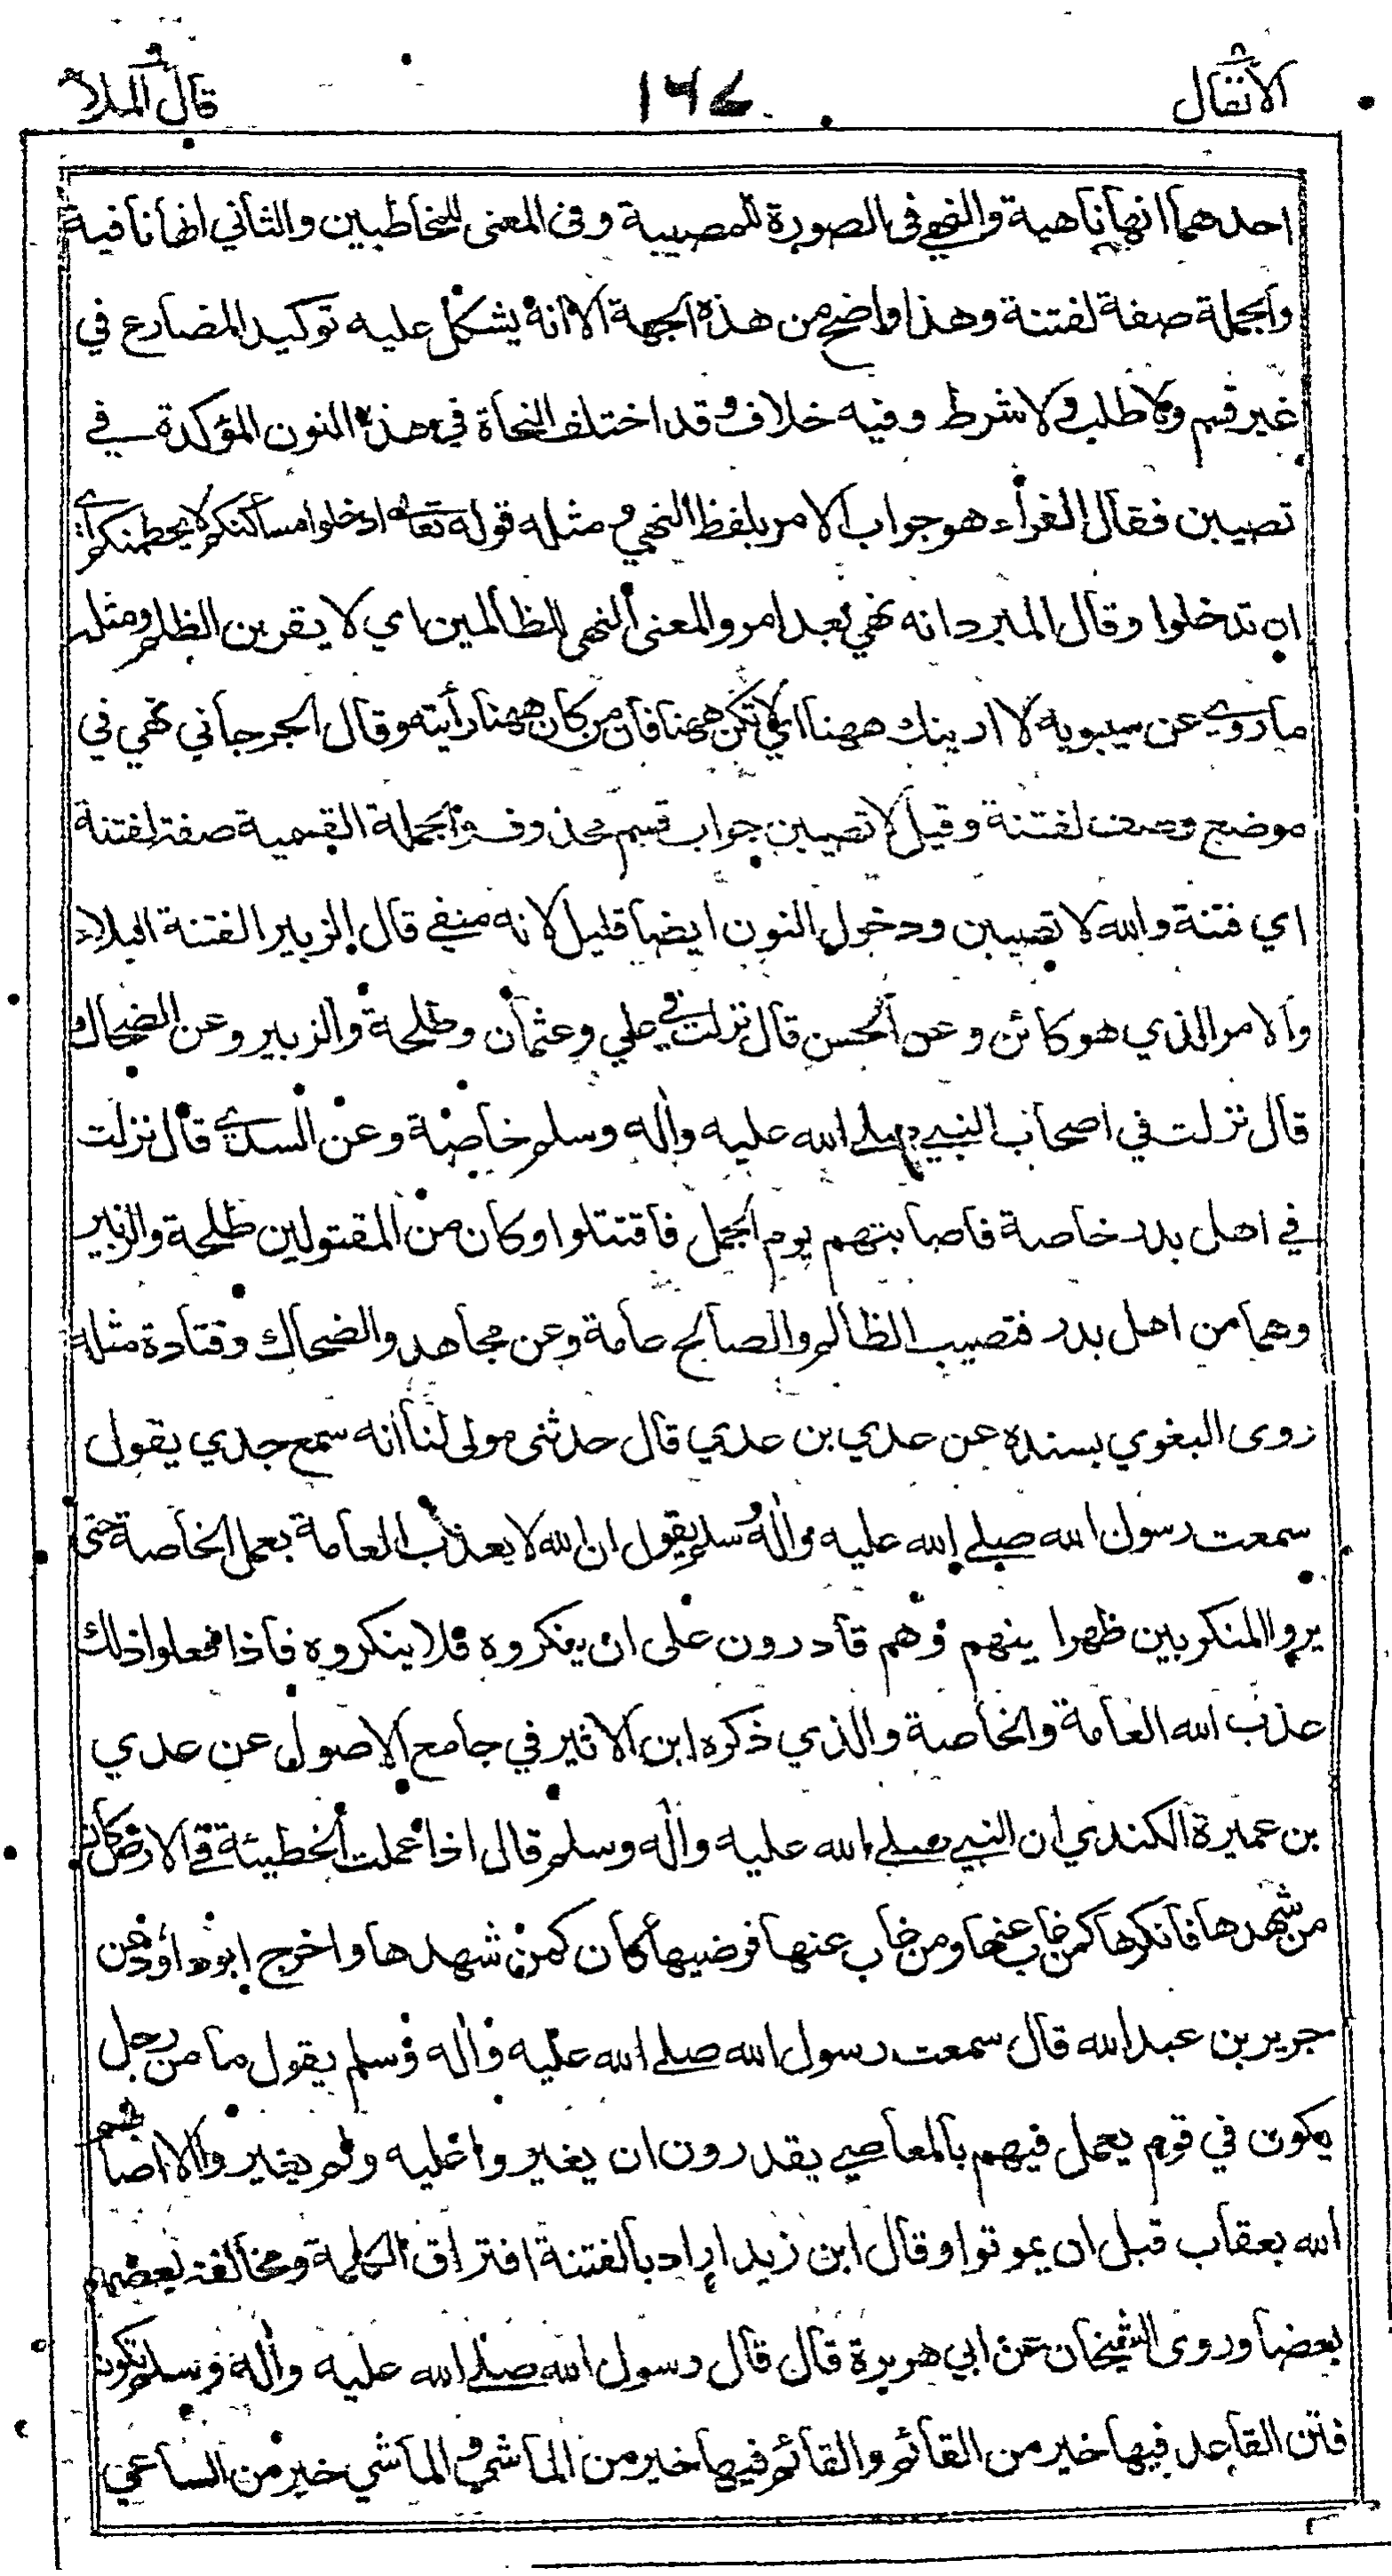 الانفال ١٦٧ قال الملأ
احدهما انها ناهية والنهي في الصورة للمصيبة وفي المعنى للمخاطبين والثاني انها نافية
والجملة صفة لفتنة وهذا واضح من هذه الجهة الا انه يشكل عليه توكيد المضارع في
غير قسم ولا طلب ولا شرط وفيه خلاف وقد اختلف النحاة في هذه النون المؤكدة في
تصيبن فقال الفرأء هو جواب الامر بلفظ النهي ومثله قوله تعالى ادخلوا مسأكنكم لا يحطمنكم اي
ان تدخلوا وقال المبرد انه نهي بعد امر والمعنى النهي للظالمين اي لا يقربن الظلم ومثله
ما روي عن سيبويه لا ارينك ههنا اي لا تكن ههنا فان من كان ههنا رأيته وقال الجرجاني نهي في
موضع وصف لفتنة وقيل لا تصيبن جواب قسم محذوف والجملة القسمية صفة لفتنة
اي فتنة والله لا تصيبن ودخول النون ايضا قليل لانه منفي قال الزبير الفتنة البلاء
والامر الذي هو كائن وعن الحسن قال نزلت في علي وعثمان وطلحة والزبير وعن الضحاك
قال نزلت في اصحاب النبي صلى الله عليه واله وسلم خاصة وعن السدي قال نزلت
في اهل بدر خاصة فاصابتهم يوم الجمل فاقتتلوا وكان من المقتولين طلحة والزبير
وهما من اهل بدر فتصيب الظالم والصالح عامة وعن مجاهد والضحاك وقتادة مثله
روى البغوي بسنده عن عدي بن عدي قال حدثنى مولى لنا انه سمع جدي يقول
سمعت رسول الله صلى الله عليه واله وسلم يقول ان الله لا يعذب العامة بعمل الخاصة حتى
يروا المنكر بين ظهرا ينهم وهم قادرون على ان ينكروه فلا ينكروه فاذا فعلوا ذلك
عذب الله العامة والخاصة والذي ذكره ابن الاثير في جامع الاصول عن عدي
بن عميرة الكندي ان النبي صلى الله عليه واله وسلم قال اذا عملت الخطيئة في الارض كان
من شهدها فانكرها كمن غاب عنها ومن غاب عنها فرضيها كان كمن شهدها واخرج ابو داؤد عن
جرير بن عبد الله قال سمعت رسول الله صلى الله عليه واله وسلم يقول ما من رجل
يكون في قوم يعمل فيهم بالمعاصي يقدرون ان يغيروا عليه ولم يغيروا الا اصابهم
الله بعقاب قبل ان يموتوا وقال ابن زيد اراد بالفتنة افتراق الكلمة ومخالفة بعضهم
بعضا وروى الشيخان عن ابي هريرة قال قال رسول الله صلى الله عليه واله وسلم تكون
فتن القاعد فيها خير من القائم والقائم فيها خير من الماشي والماشي خير من الساعي